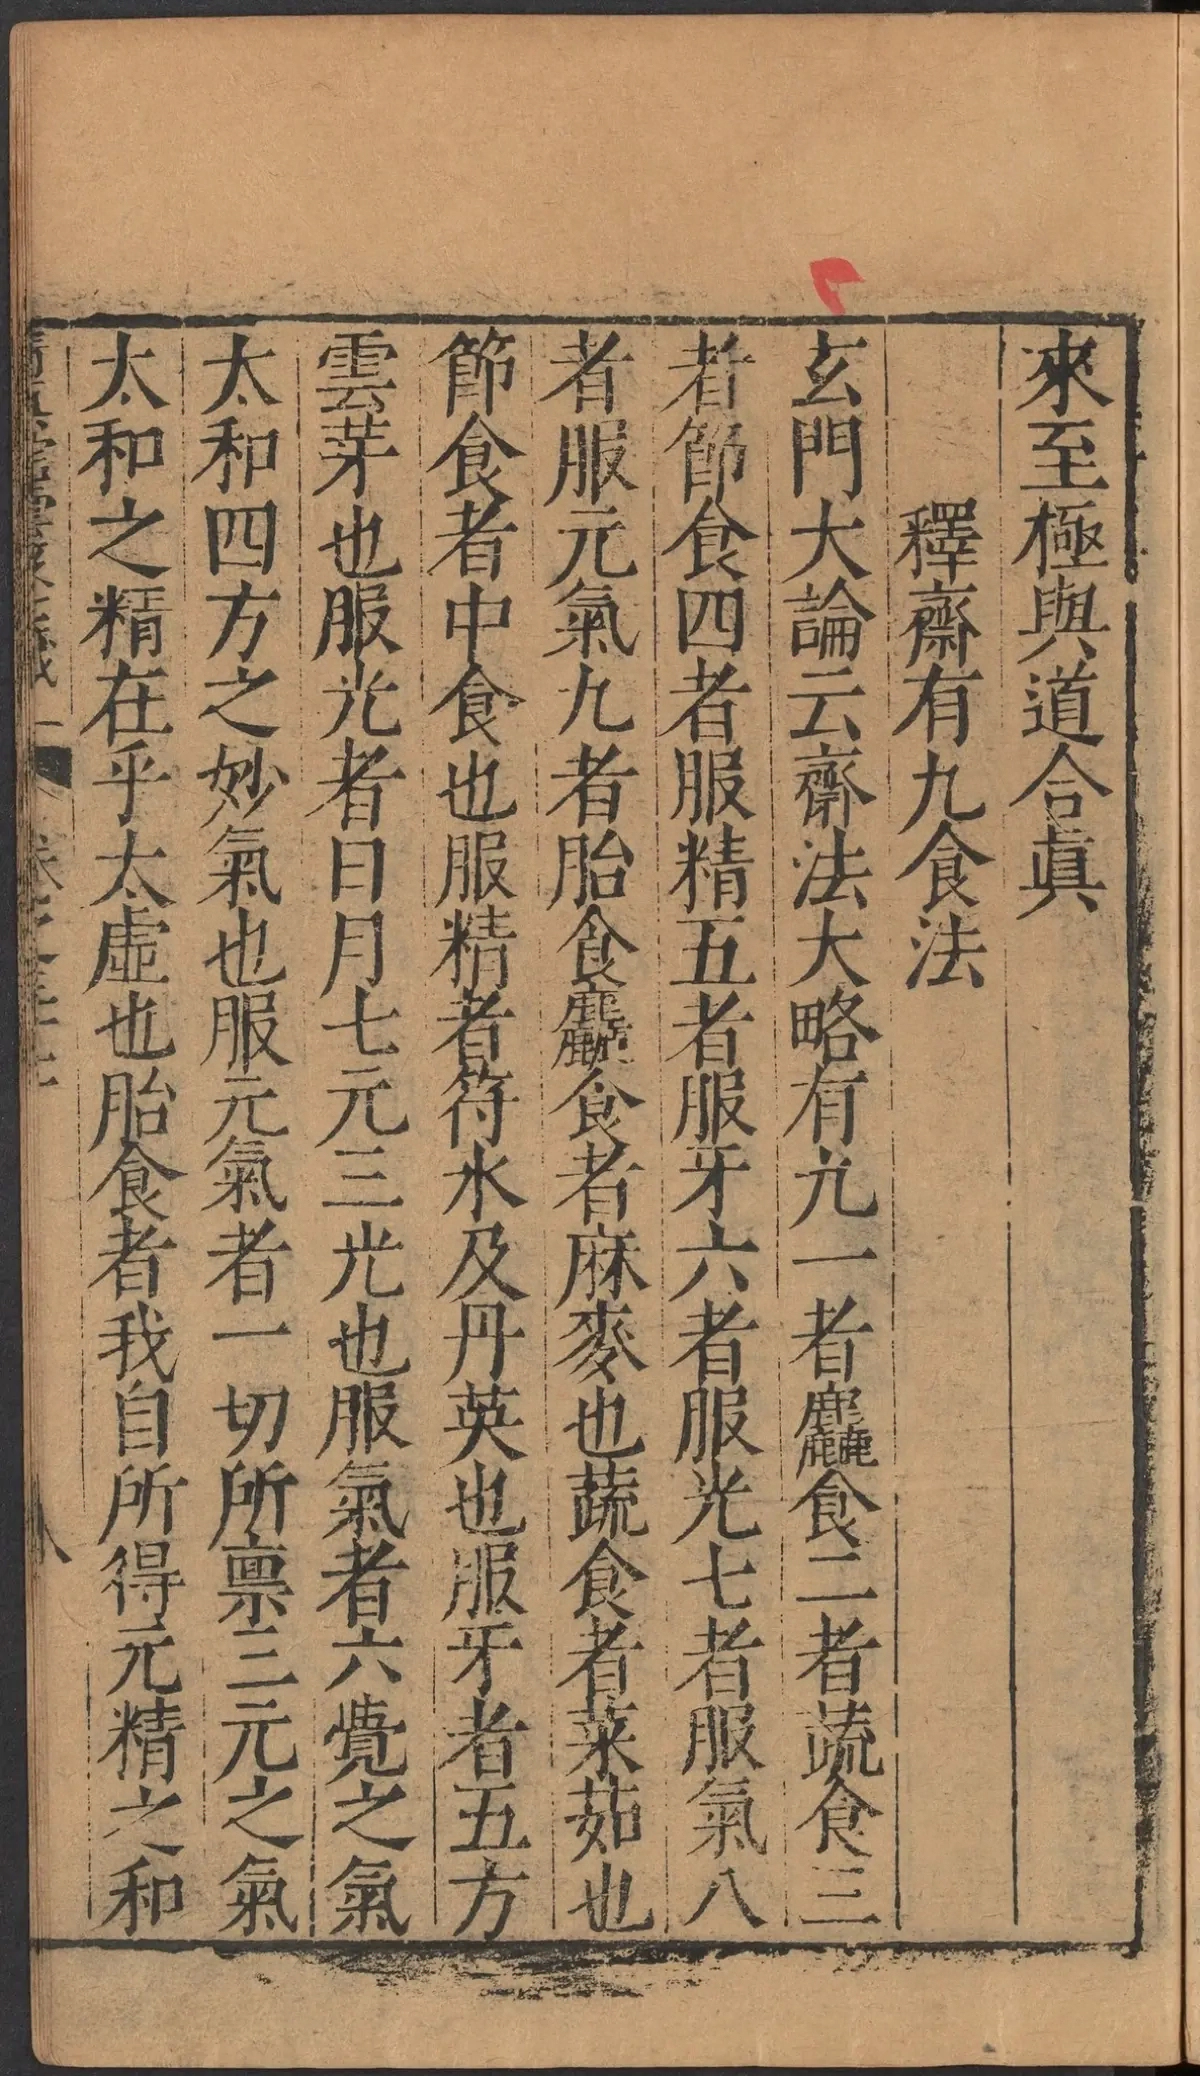 來至極與道合眞
釋齋有九食法
玄門大論云齋法大略有九一者麤食二者蔬食三
者節食四者服精五者服牙六者服光七者服氣八
者服元氣九者胎食麤食者麻麥也蔬食者菜茹也
節食者中食也服精者符水及丹英也服牙者五方
雲芽也服光者日月七元三光也服氣者六覺之氣
太和四方之妙氣也服元氣者一切所稟三元之氣
太和之精在乎太虛也胎食者我自所得元精之和